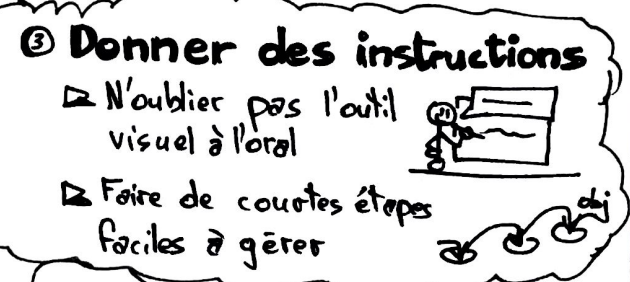 ③ Donner des instructions
N'oublier pas l'outil
visuel à l'oral
Faire de courtes étapes
faciles à gérer
obj